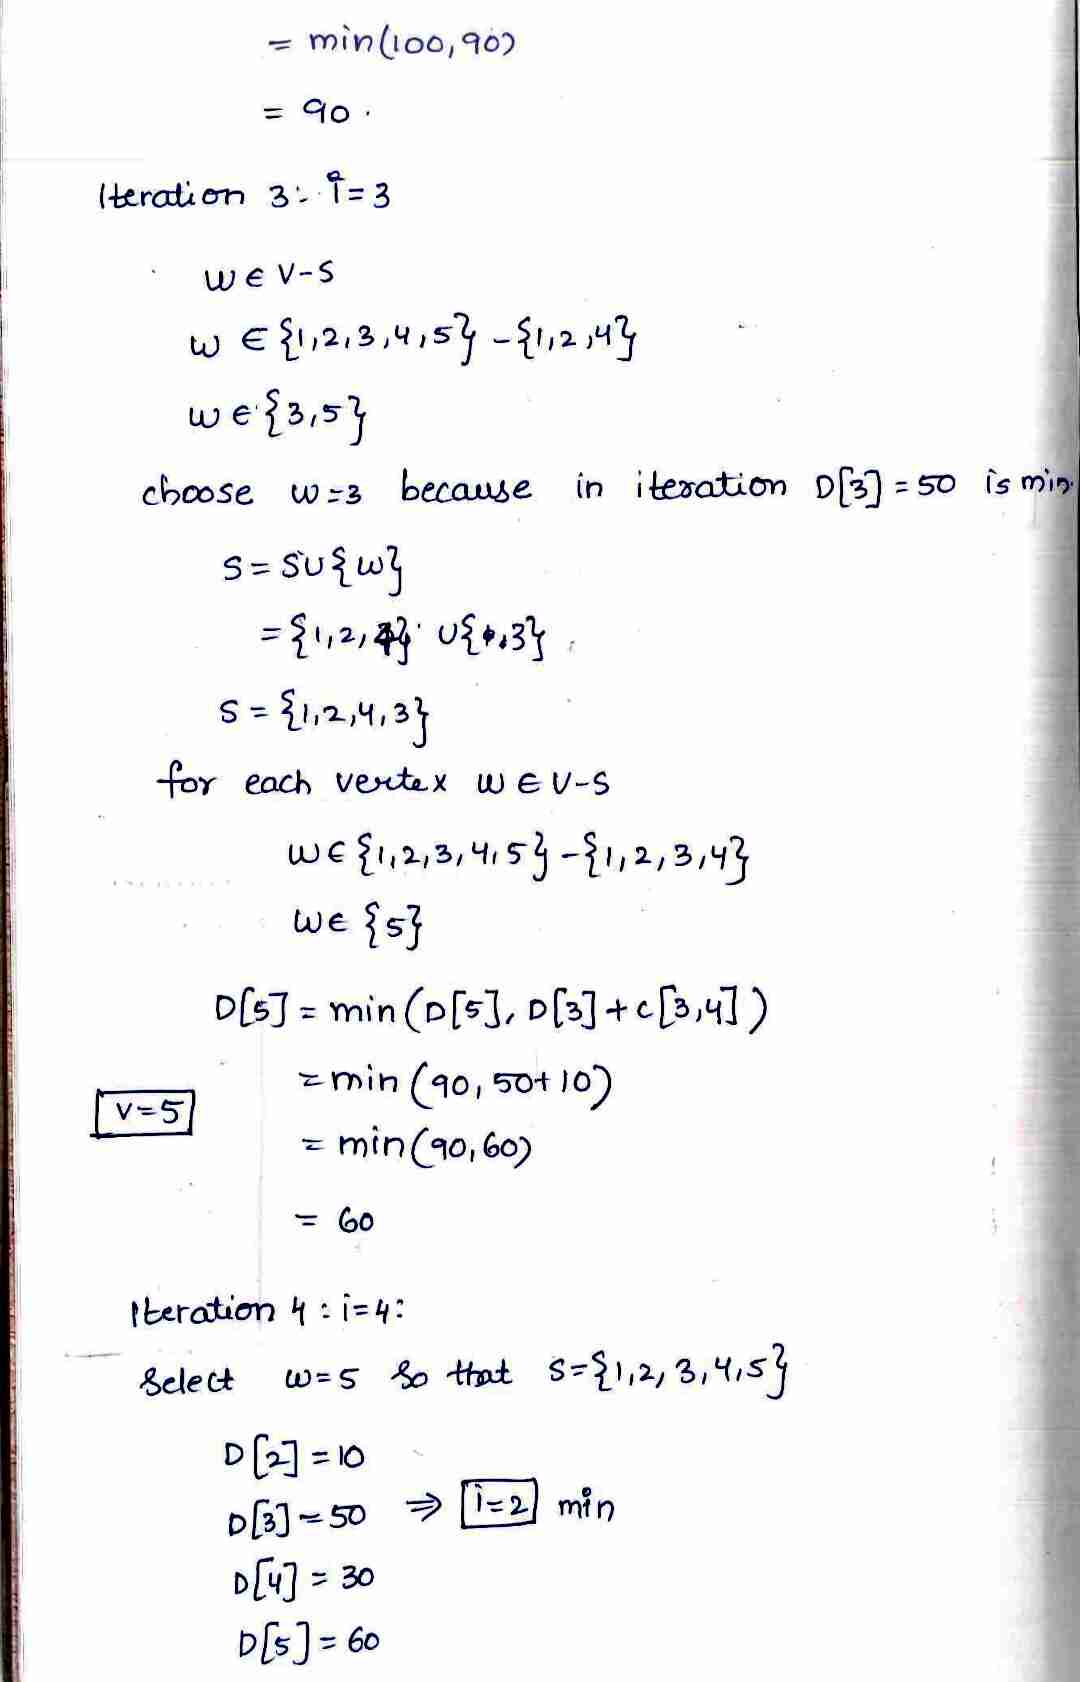 = min(100,90)
= 90.
Iteration 3: i=3
w ∈ V-S
w ∈ {1,2,3,4,5} - {1,2,4}
w ∈ {3,5}
choose w=3 because in iteration D[3] = 50 is min.
S = SU{w}
= {1,2,4} U{3}
S = {1,2,4,3}
for each vertex w ∈ V-S
w ∈ {1,2,3,4,5} - {1,2,3,4}
w ∈ {5}
D[5] = min(D[5], D[3] + c[3,4])
= min (90, 50+10)
v=5
= min(90,60)
= 60
Iteration 4 : i=4:
Select w=5 so that S={1,2,3,4,5}
D[2] = 10
D[3] = 50 ⇒ i=2 min
D[4] = 30
D[5] = 60